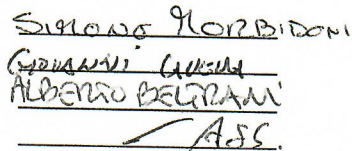 SIMONE MORBIDONI
GIOVANNI
ALBERTO BELTRAMI